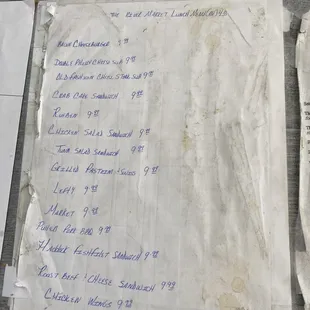 THE REVEL MARKET LUNCH MENU
BACON CHEESEBURGER 9
DOUBLE CHEESE SUB 9
OLD FASHION CHEESE STEAK SUB 9
CRAB CAKE SANDWICH 9
REUBEN 9
CHICKEN SALAD SANDWICH 9
TUNA SALAD SANDWICH 9
GRILLED PASTRAMI SWISS 9
LEFTY 9
MARKET 9
PULLED PORK BBQ 9
HADDOCK FISH SANDWICH 9
ROAST BEEF & CHEESE SANDWICH 9
CHICKEN WINGS 9